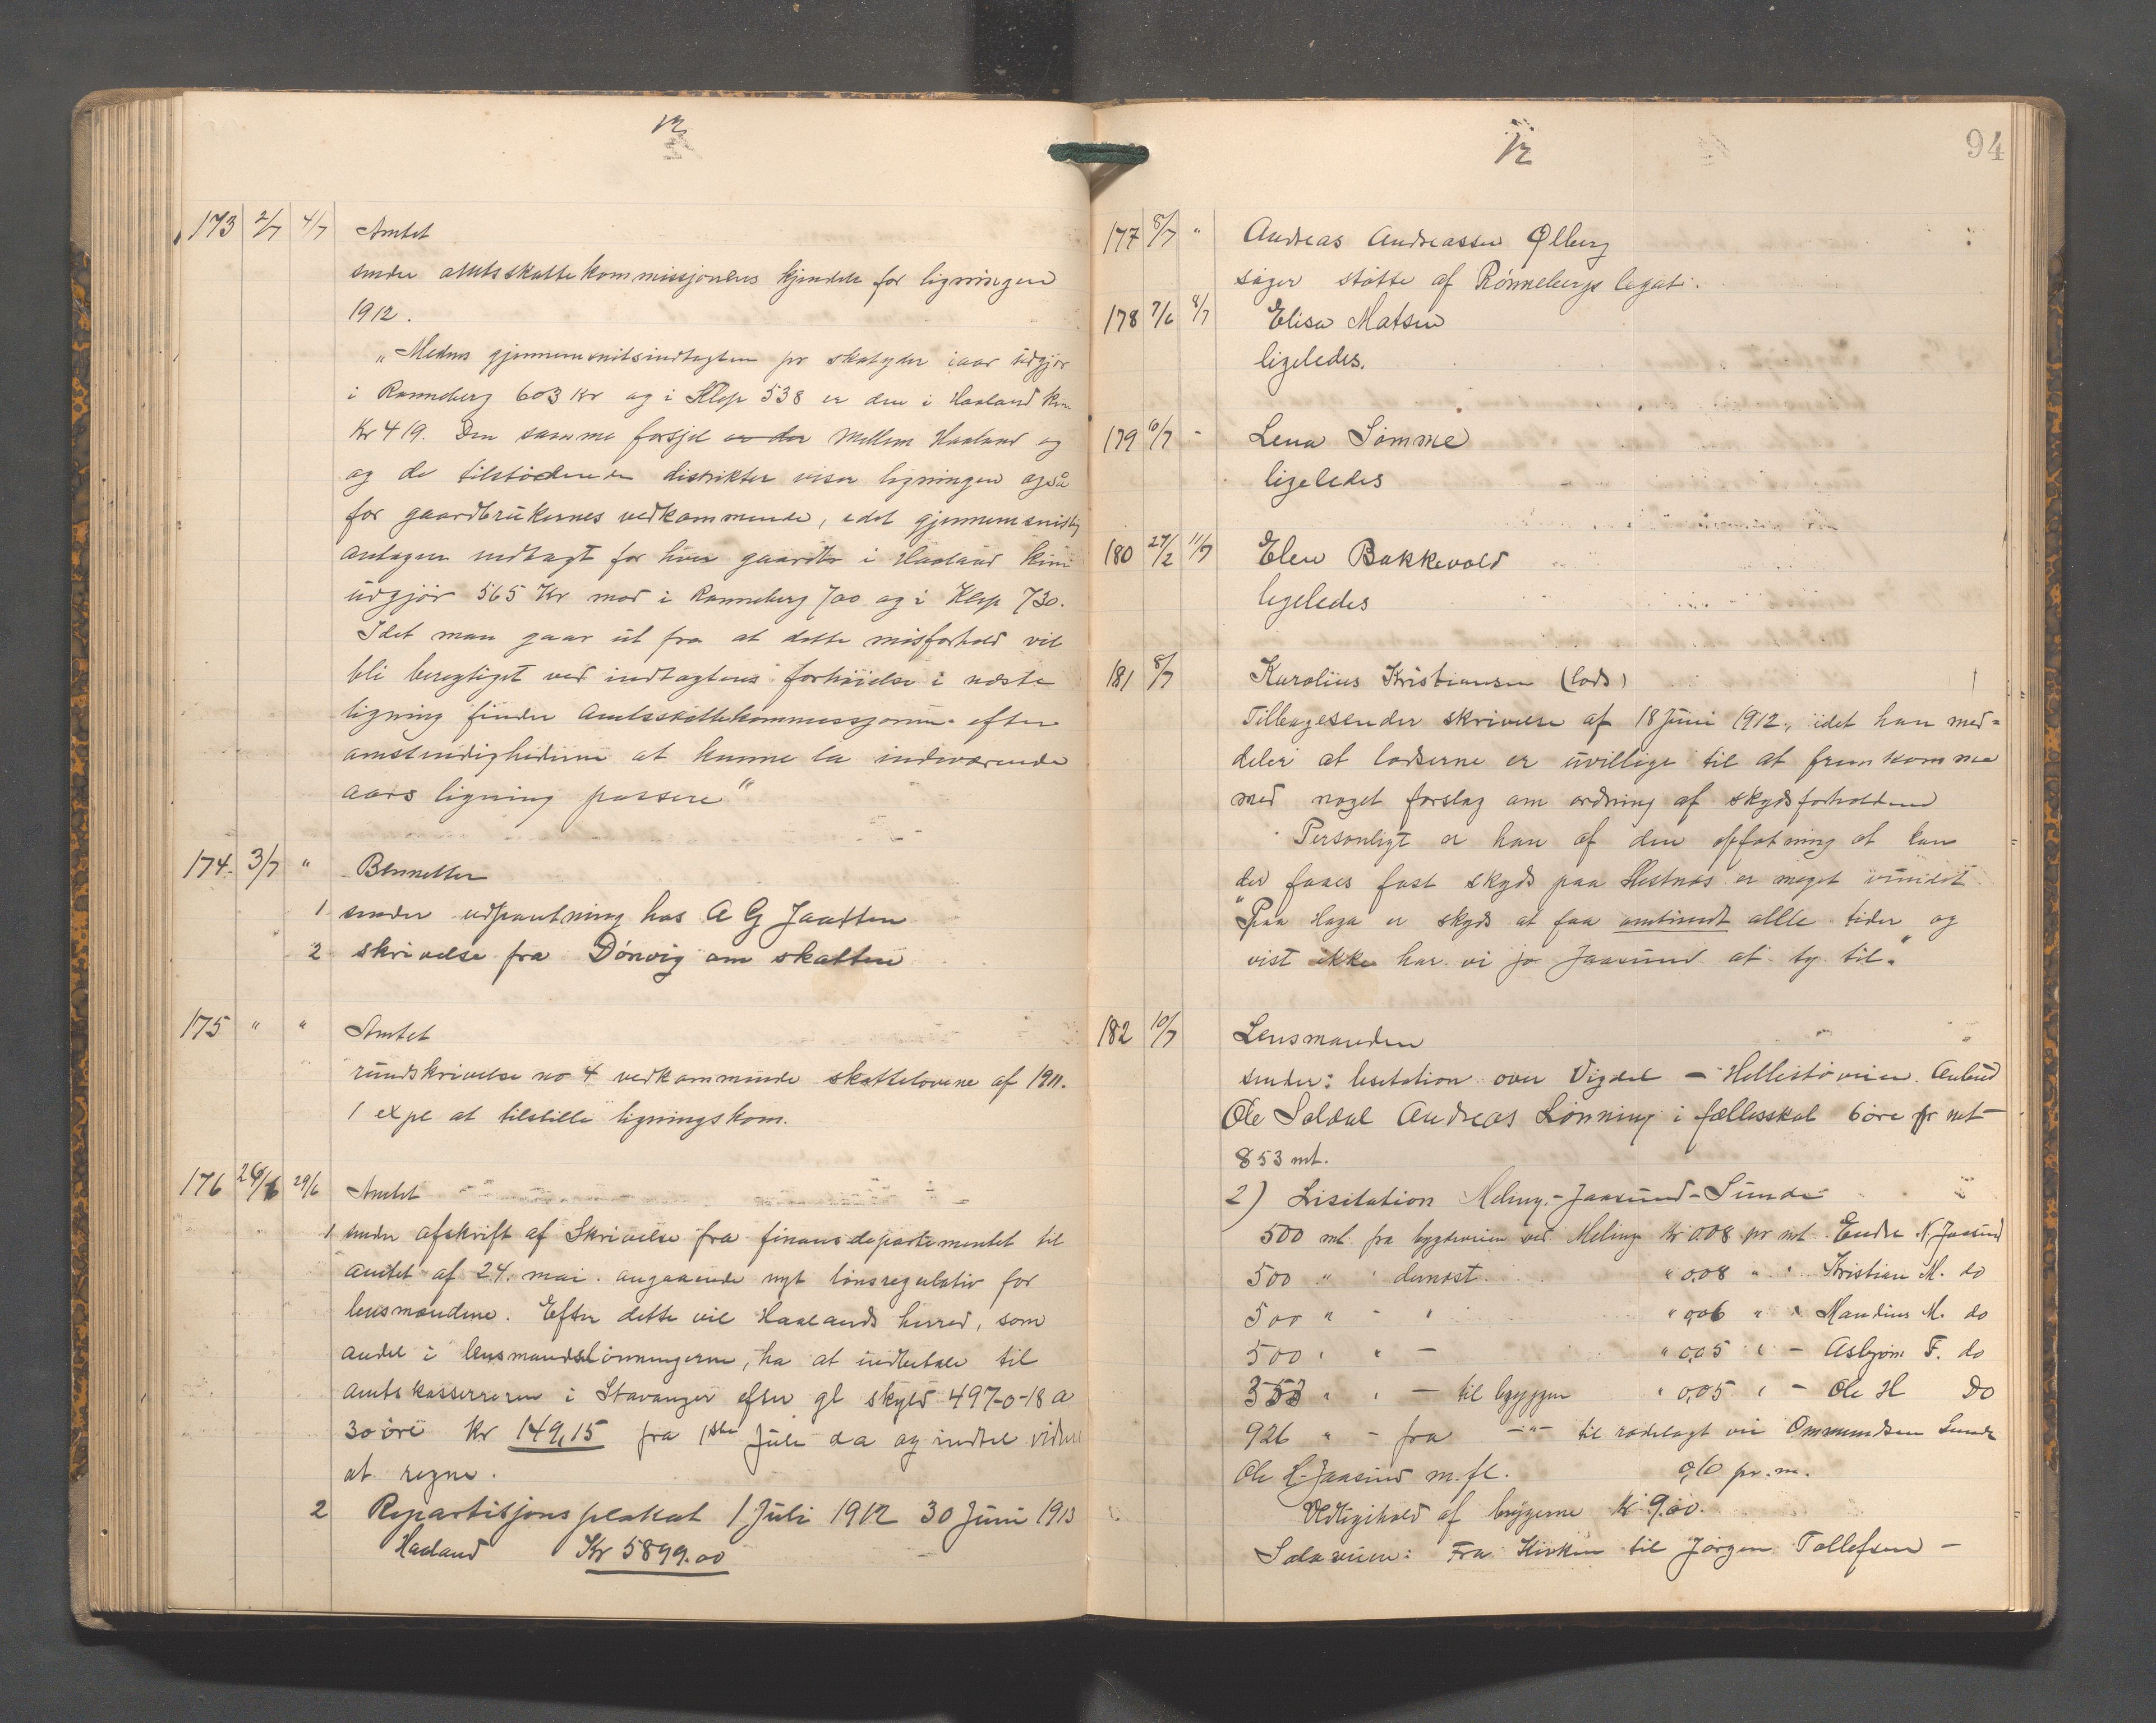 12
173 2/7 4/7 Amtet
sender amtsskattekommissjonens kjendelse for ligningen
1912.
"Medens gjennemsnitsindtægten pr skatyder iaar udgjør
i Ranneberg 603 Kr og i Klep 538 er den i Haaland kun
Kr 419. Den samme forsjel er der mellem Haaland og
og de tilstødende distrikter viser ligningen også
for gaardbrukernes vedkommende, idet gjennemsnitlig
antagen indtægt for hver gaardbr i Haaland kun
udgjør 565 Kr mod i Ranneberg 700 og i Klep 730.
Idet man gaar ut fra at dette misforhold vil
bli beregtiget ved indtægtens forhøielse i næste
ligning finder Amtsskattekommissjonen efter
omstendighederne at kunne la indeværende
aars ligning passere"
174. 3/7 " Bennetter
1 sender udpantning hos A G Jaatten
2 skrivelse fra Dønvig om skatten
175 " " Amtet
rundskrivelse no 4 vedkommende skattelovene af 1911.
1 expl at tilstille ligningskom.
176 24/6 29/6 Amtet
1 sender afskrift af Skrivelse fra finansdepartementet til
amtet af 24. mai. angaaende nyt lønsregulativ for
lensmændene. Efter dette vil Haalands herred, som
andel i lensmandslønningerne, ha at indbetale til
amtskasserreren i Stavanger efter gl skyld 497-0-18 a
30 øre Kr 149,15 fra 1ste Juli da og indtil videre
at regne.
2 Repartisjonsplakat 1 Juli 1912 30 Juni 1913
Haaland Kr 5899.00
12
94
177 5/7 " Andreas Andreassen Ølberg
søger støtte af Rønnebergs legat.
178 7/6 8/7 Elisa Matsen
ligeledes.
179 6/7 - Lena Sømme
ligeledes
180 27/2 11/7 Elen Bakkevold
ligeledes
181 8/7 Karolius Kristiansen (lods)
Tilbagesender skrivelse af 18 Juni 1912, idet han med=
deler at lodserne er uvillige til at fremkomme
med noget forslag om ordning af skydsforholdene
Personligt er han af den opfatning at kan
der faaes fast skyds paa Hestnæs er meget
"Paa Haga er skyds at faa omtrendt allle tider og
vist ikke har vi jo Jaasund at ty til."
182 10/7 Lensmanden
sender: lisitation over Vigdel - Hellestøveien. Anbud
Ole Soldal Andreas Lønning i fællesskab 6 øre pr mt -
853 mt.
2) Lisitation Meling.- Jaasund - Sunde
500 mt. fra bygdeveien ved Melinge Kr 0.08 pr mt. Endre N. Jaasund
500 " " dernæst " 0,08 " " Kristian M. do
500 " - " " 0,06 " " Mandius M. do
500 " " - " 0,05 " - Asbjørn F. do
353 " " - til bryggen " 0,05 " - Ole H do
926 " - fra -"- til rodelagt vei Ommundsen Sunde
Ole H. Jaasund m.fl. 0,10 pr. m.
Vedligehold af bryggerne Kr 9.00.
Solaveien: Fra Kirken til Jørgen Tollefsen -